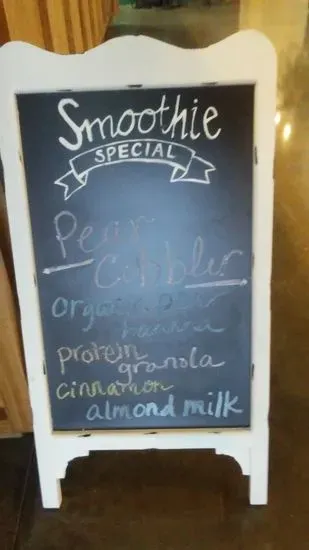 Smoothie
SPECIAL
Pear
Cobbler
organic pear
banana
protein
granola
cinnamon
almond milk